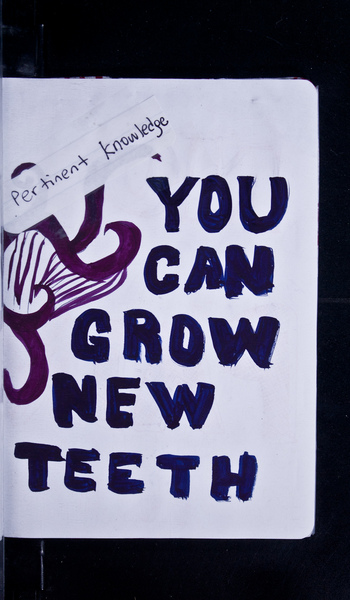 Pertinent Knowledge
YOU
CAN
GROW
NEW
TEETH